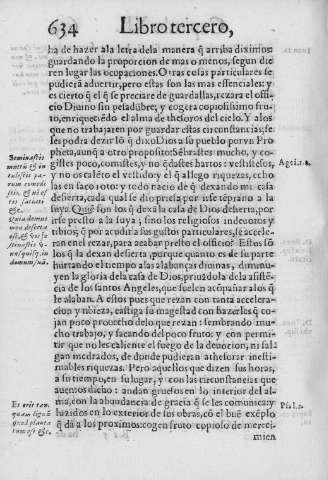 634 Libro tercero,
ha de hazer ala letra dela manera q̃ arriba diximos:
guardando la proporcion de mas o menos, segun die
ren lugar las ocupaciones. Otras cosas particulares se
pudierã aduertir, pero estas son las mas essenciales: y
es cierto q̃ el q̃ se preciare de guardallas, rezara el offi-
cio Diuino sin pesadũbre, y cogera copiosissimo fru-
to, enriqueciẽdo el alma de thesoros del cielo. Y alos
que no trabajaren por guardar estas circunstancias, se
les podra dezir lo q̃ dixo Dios a su pueblo por vn Pro-
pheta, aunq̃ a otro proposito: Sẽbrastes mucho, y co-
gistes poco, comistes, y no q̃dastes hartos: vestistesos,
y no os calẽto el vestido: y el q̃ allego riquezas, echo
las en saco roto: y todo nacio de q̃ dexando mi casa
desierta, cada qual se dio priesa por irse tẽprano a la
suya. Quiẽ son los q̃ dexã la casa de Dios desierta, por
irse presto a la suya, sino los religiosos indeuotos y
tibios; q̃ por acudir a sus gustos particulares, se acele-
ran en el rezar, para acabar presto el officio? Estos sõ
los q̃ la dexan desierta, porque quanto es de su parte
hurtando el tiempo alas alabanças diuinas, diminu-
yen la gloria dela casa de Dios, priuãdola dela assistẽ-
cia de los santos Angeles, que suelen acõpañar alos q̃
le alaban. A estos pues que rezan con tanta accelera-
cion y tibieza, castiga su magestad con hazerles q̃ co-
jan poco prouecho delo que rezan: sembrando mu-
cho trabajo, y sacando del poco fruto: y con permi-
tir que no les caliente el fuego de la deuocion, ni sal
gan medrados, de donde pudieran athesorar inesti-
mables riquezas. Pero aquellos que dizen sus horas,
a su tiempo, en su lugar, y con las circunstancias que
auemos dicho: andan gruesos en lo interior del al-
ma, con la abundancia de gracia q̃ se les comunica: y
luzidos en lo exterior de sus obras, cõ el buẽ exẽplo
q̃ dã a los proximos: cogen fruto copioso de mereci-
mien
Seminastis
multũ & in
tulistis pa-
rum comedi
stis, & nõ es
tis satiati
&c.
Quia domus
mea deserta
Agei.1.8.
Et erit tan-
quam lignũ
quod planta
tum est &c.
Psal.1.